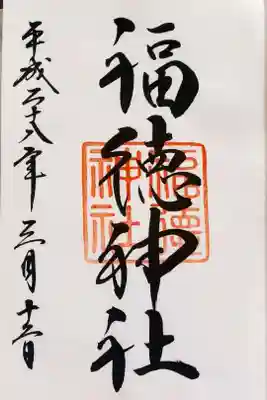 福徳神社
福徳神社
平成二十八年三月十三日